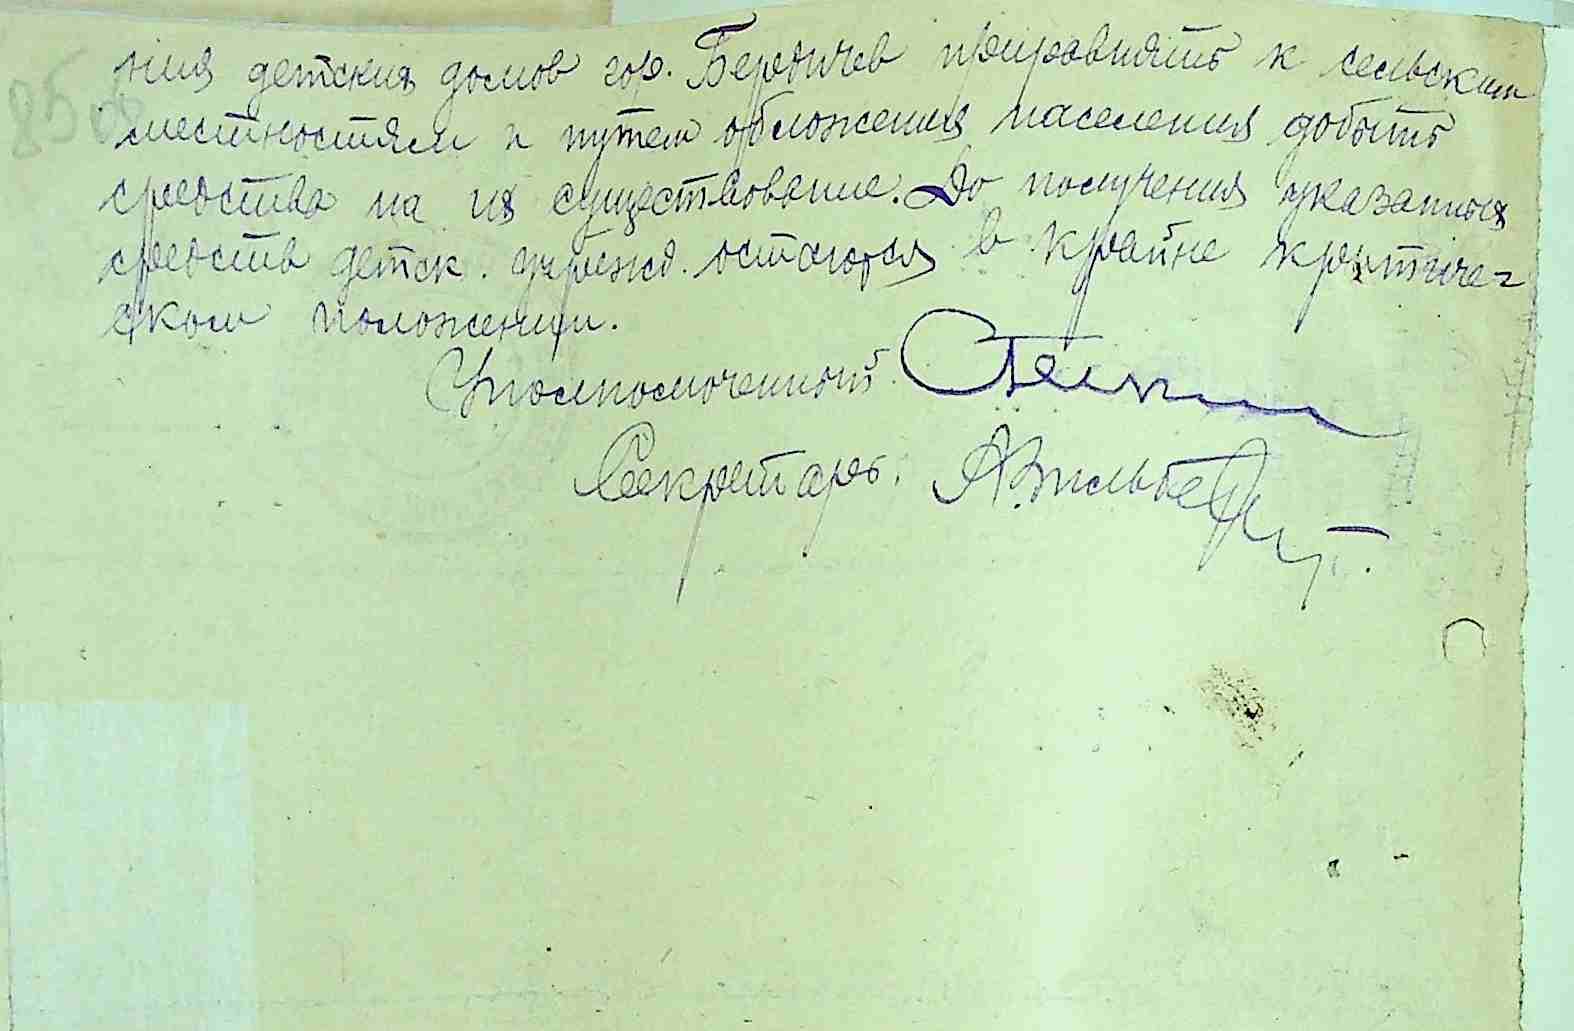 ния детских домов гор. Бердичев приравнять к сельским
местностям и путем обложения населения добыть
средства на их существование. До получения указанных
средств детск. учрежд. остаются в крайне критиче=
ском положении.
Уполномоченный
Секретарь: